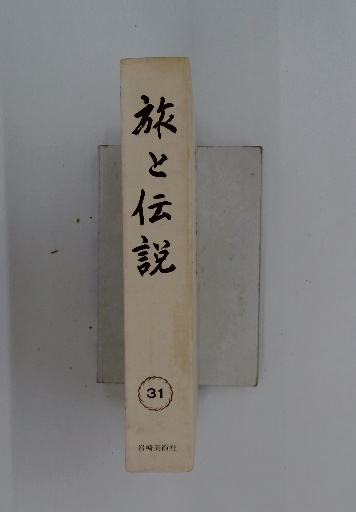 旅と伝説
31
岩崎美術社